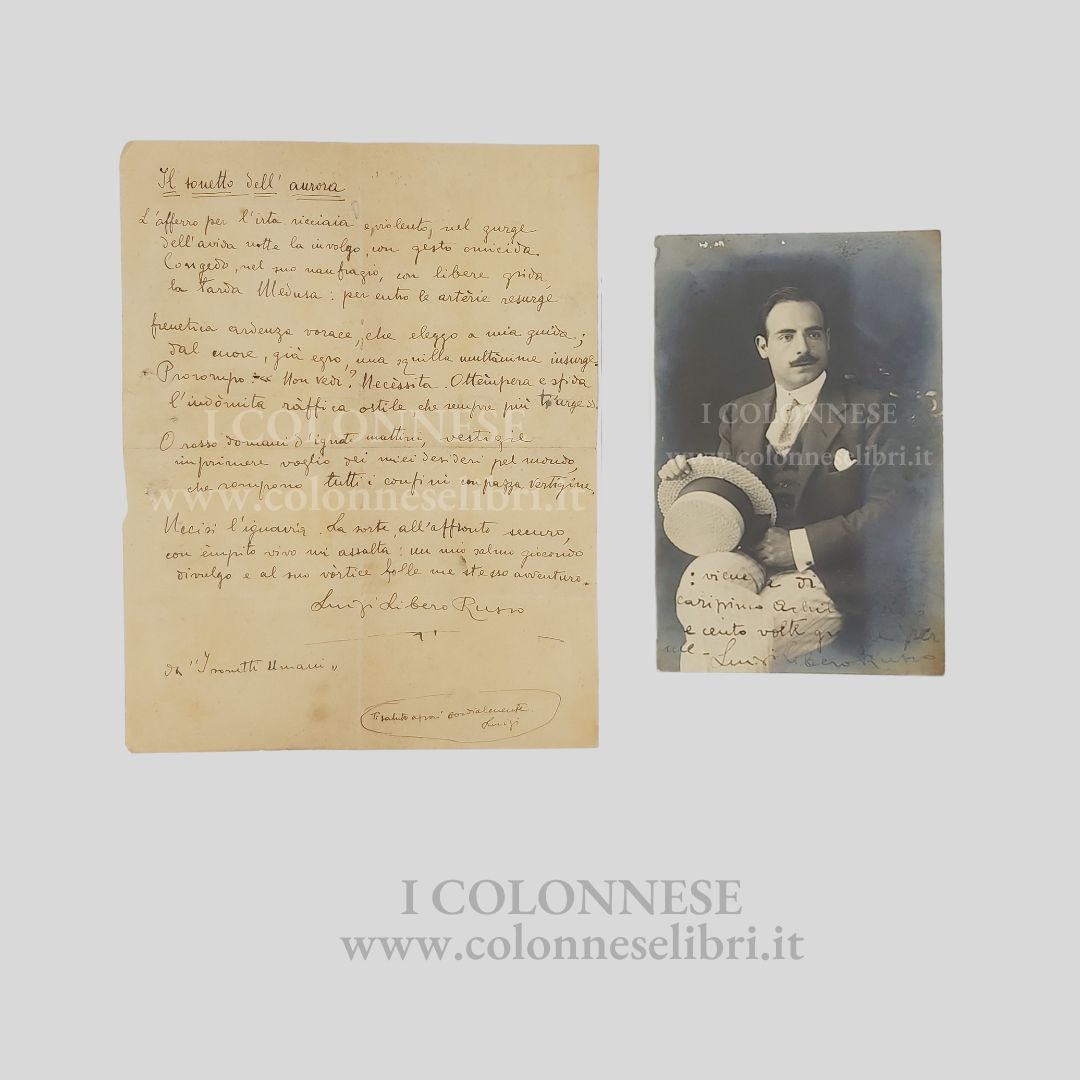 Il sonetto dell'aurora
L'afferro per l'irta ricciaia e, violento, nel gurge
dell'avida notte la involgo, con gesto omicida.
Congedo, nel suo naufragio, con libere grida,
la tarda Medusa: per entro le artèrie resurge
frenetica ardenza vorace, che eleggo a mia guida;
dal cuore, già egro, una squilla multànime insurge.
Prorompo: « Non vedi? Necèssita. Ottèmpera e sfida
l'indòmita ràffica ostile che sempre più t'urge ».
O rosso domani d'ignoti mattini, vestigie
imprimere voglio dei miei desideri pel mondo,
che rompono tutti i confini con pazza vertigine.
Uccisi l'ignavia. La sorte, all'affronto securo,
con èmpito vivo mi assalta: un mio salmo giocondo
divulgo e al suo vòrtice folle me stesso avventuro.
Luigi Libero Russo
da "I sonetti Umani"
Ti saluto assai cordialmente
Luigi
I COLONNESE
www.colonneselibri.it
I COLONNESE
www.colonneselibri.it
di
carissimo
e cento volte per
me -
Luigi Libero Russo
I COLONNESE
www.colonneselibri.it